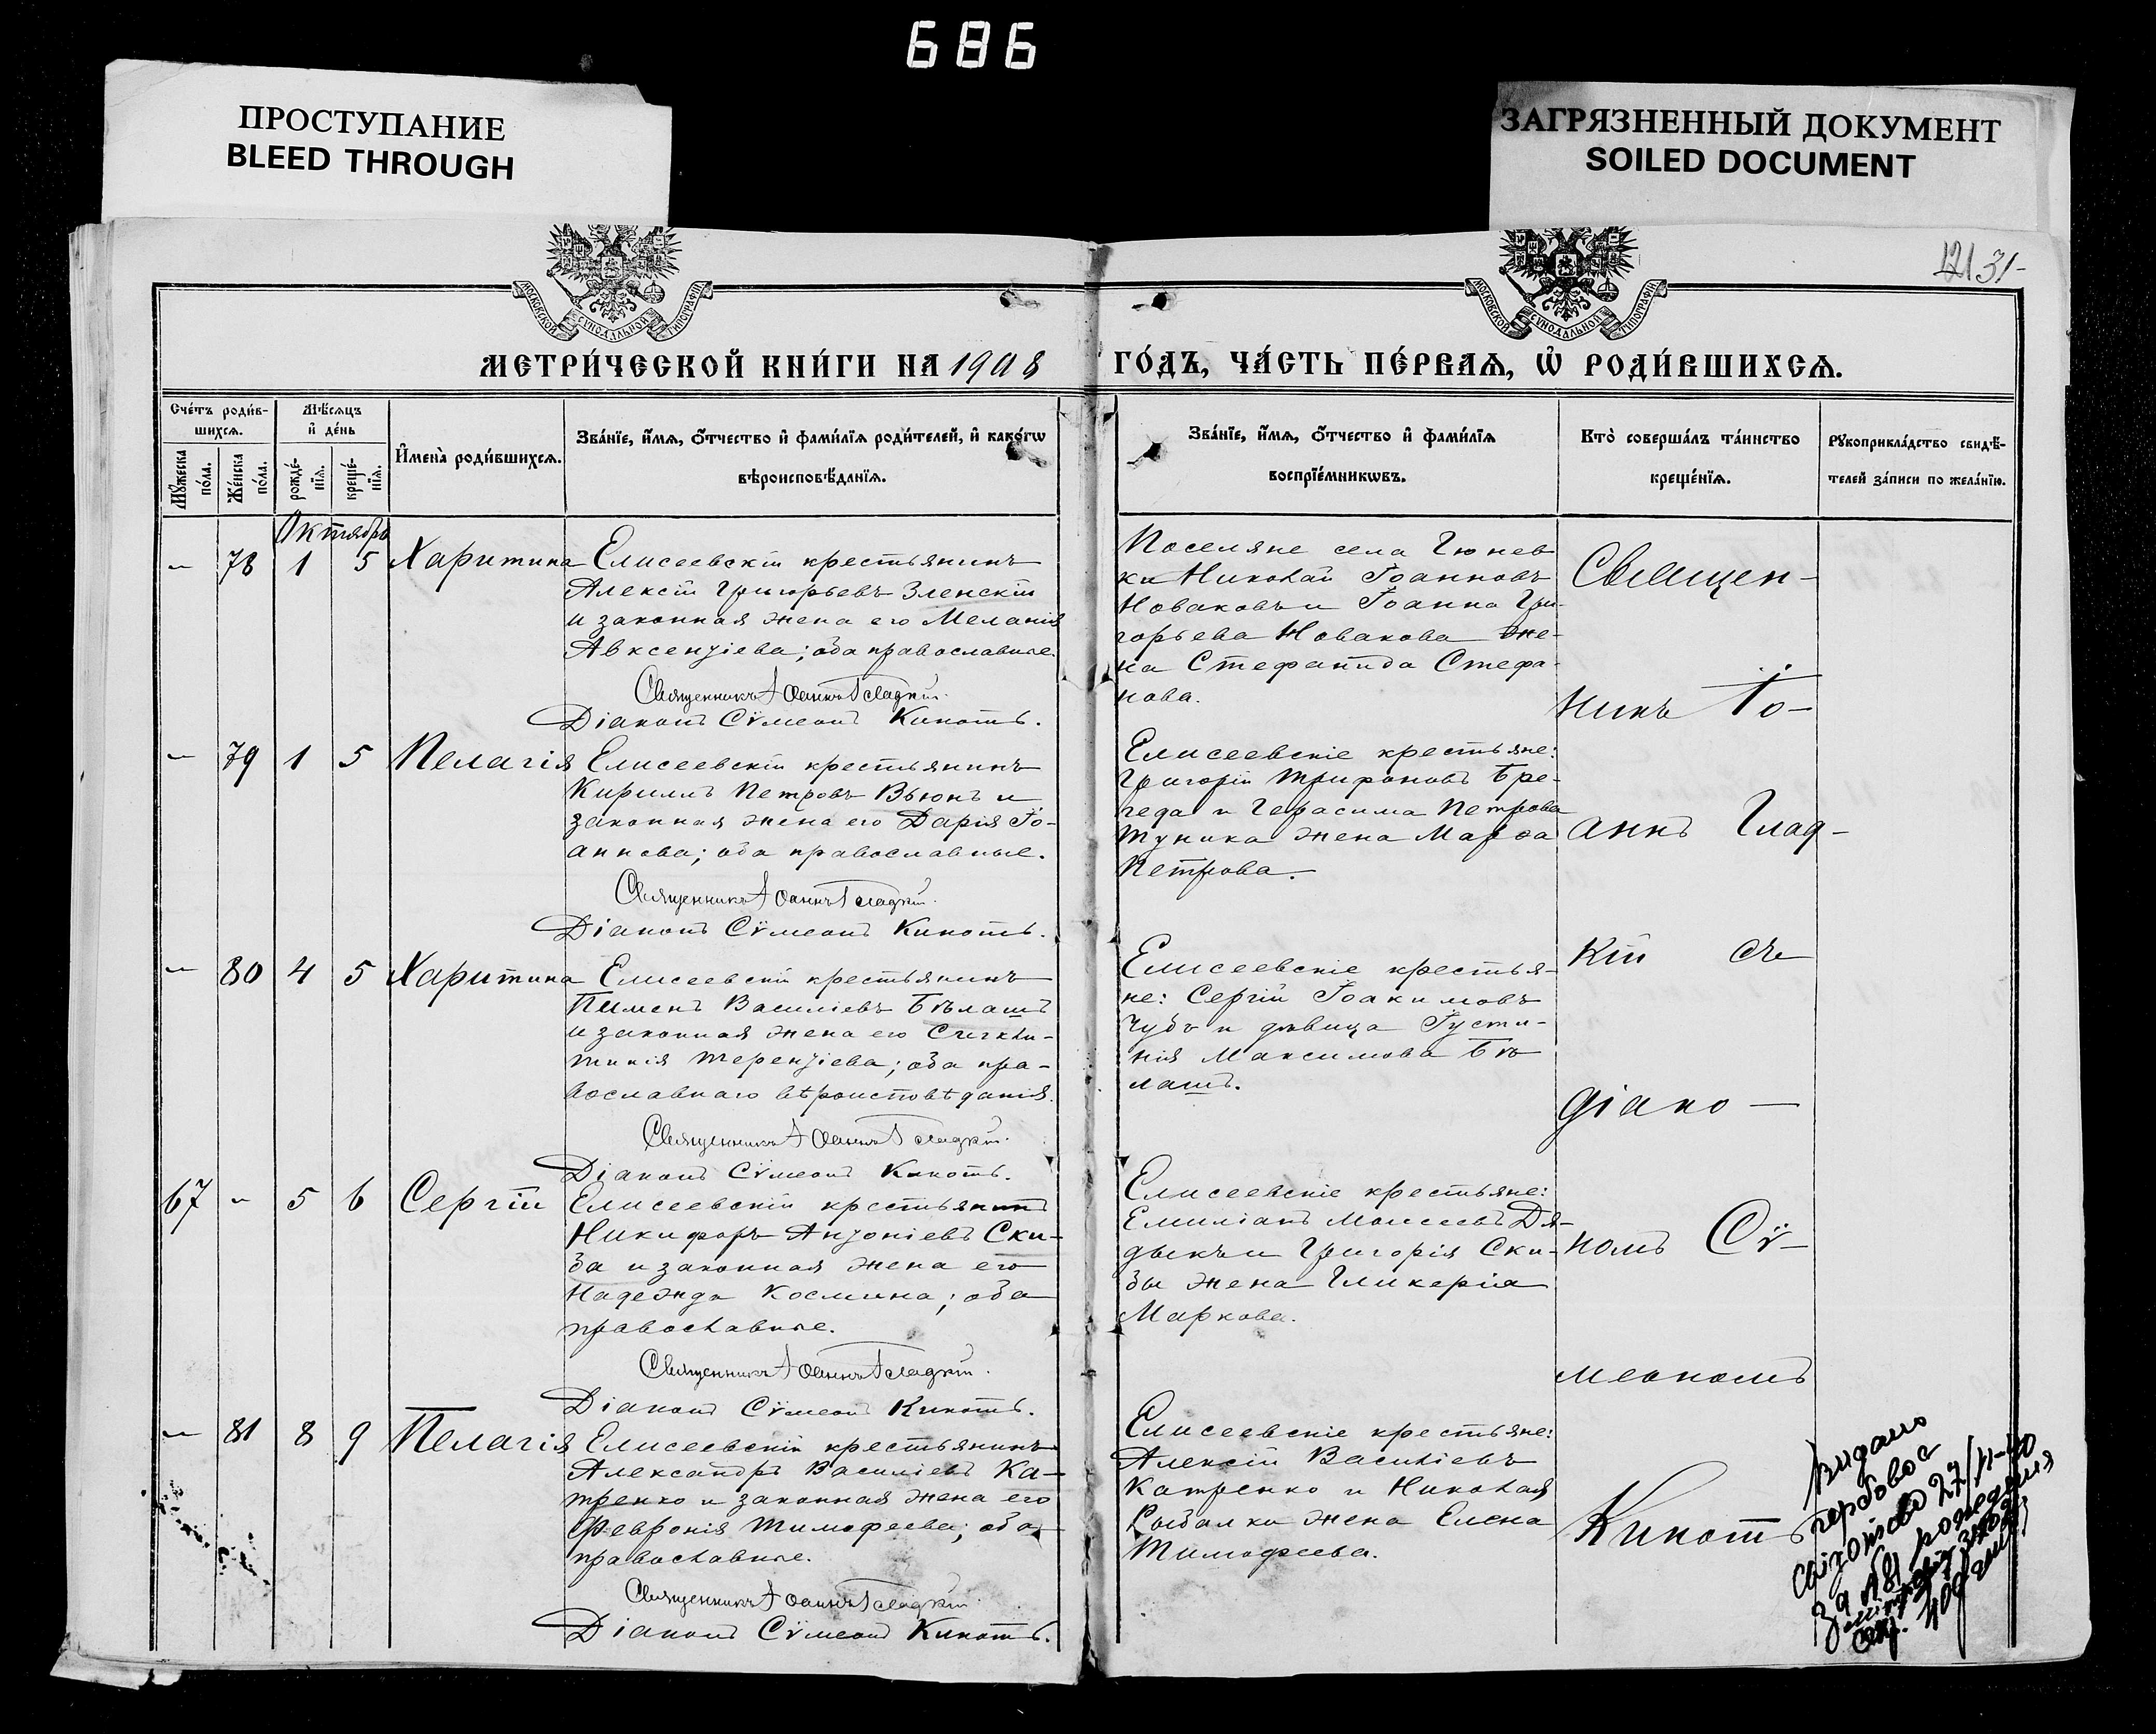 686
ПРОСТУПАНИЕ
BLEED THROUGH
ЗАГРЯЗНЕННЫЙ ДОКУМЕНТ
SOILED DOCUMENT
МОСКОВСКОЙ СѴНОДАЛЬНОЙ ТИПОГРАФІИ
МОСКОВСКОЙ СѴНОДАЛЬНОЙ ТИПОГРАФІИ
31
МЕТРИ́ЧЕСКОЙ КНИ́ГИ НА 1908 ГО́ДЪ, ЧА́СТЬ ПЕ́РВАѦ, Ѡ РОДИ́ВШИХСѦ.
Сче́тъ роди́в-
шихсѧ.
Мꙋжеска по́ла.
Же́нска по́ла.
Мѣ́сѧцъ
и҆ де́нь
рожде́-
нїѧ.
креще́-
нїѧ.
И҆мена̀ роди́вшихсѧ.
Зва́нїе, и҆́мѧ, ѻ҆́тчество и҆ фами́лїѧ роди́телей, и҆ како́гѡ
вѣроисповѣ́данїѧ.
Зва́нїе, и҆́мѧ, ѻ҆́тчество и҆ фами́лїѧ
воспрїе́мникѡвъ.
Кто̀ соверша́лъ та́инство
креще́нїѧ.
Рꙋкоприкла́дство свидѣ́-
телей за́писи по жела́нїю.
Октябрь
– 78 1 5 Харитина
Елисеевскій крестьянинъ
Алексій Григорьевъ Зленскій
и законная жена его Меланія
Авксентіева; оба православные.
Священникъ Іоаннъ Гладкій.
Діаконъ Сѵмеонъ Кикоть.
Поселяне села Гюнев
ки Николай Іоанновъ
Новаковъ и Іоанна Гри-
горьева Новакова же-
на Стефанида Стефа-
нова.
– 79 1 5 Пелагія
Елисеевскій крестьянинъ
Кириллъ Петровъ Вьюнъ и
законная жена его Дарія Іо-
аннова; оба православные.
Священникъ Іоаннъ Гладкій.
Діаконъ Сѵмеонъ Кикоть.
Елисеевскіе крестьяне:
Григорій Трифоновъ Бре-
геда и Герасима Петрова
Туника жена Марѳа
Петрова.
– 80 4 5 Харитина
Елисеевскій крестьянинъ
Пименъ Василіевъ Бѣлашъ
и законная жена его Сигкли-
тикія Терентіева; оба пра-
вославнаго вѣроисповѣданія.
Священникъ Іоаннъ Гладкій.
Діаконъ Сѵмеонъ Кикоть.
Елисеевскіе крестья-
не: Сергій Іоакимовъ
Чубъ и дѣвица Іусти-
нія Максимова Бѣ
лашъ.
67 – 5 6 Сергій
Елисеевскій крестьянинъ
Никифоръ Антоніевъ Ски-
ба и законная жена его
Надежда Космина; оба
православные.
Священникъ Іоаннъ Гладкій.
Діаконъ Сѵмеонъ Кикоть.
Елисеевскіе крестьяне:
Емиліанъ Моисеевъ Дя-
дыкъ и Григорія Ски-
бы жена Гликерія
Маркова.
– 81 8 9 Пелагія
Елисеевскій крестьянинъ
Александръ Василіевъ Ка-
тренко и законная жена его
Февронія Тимофеева; оба
православные.
Священникъ Іоаннъ Гладкій.
Діаконъ Сѵмеонъ Кикоть.
Елисеевскіе крестьяне:
Алексій Василіевъ
Катренко и Николая
Рыбалки жена Елена
Тимофеева.
Священ-
никъ Іо-
аннъ Глад-
кій съ
діако-
номъ Сѵ-
меономъ
Кикоть
Видано
гербовое
свідоцтво 27/II-40
за №81 рождения